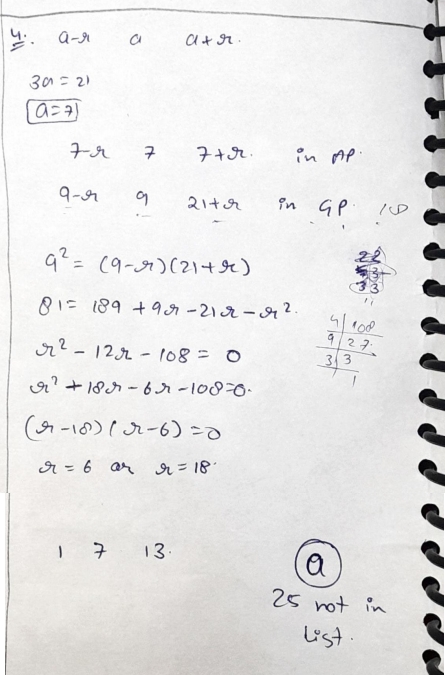 4. a-r a a+r.
3a = 21
a=7
7-r 7 7+r. in AP.
9-r 9 21+r in GP.
9² = (9-r)(21+r)
81 = 189 + 9r - 21r - r².
r² - 12r - 108 = 0
r² + 18r - 6r - 108=0.
(r-18)(r-6)=0
r = 6 or r = 18.
1 7 13.
4 | 108
9 | 27
3 | 3
1
a
25 not in
list.